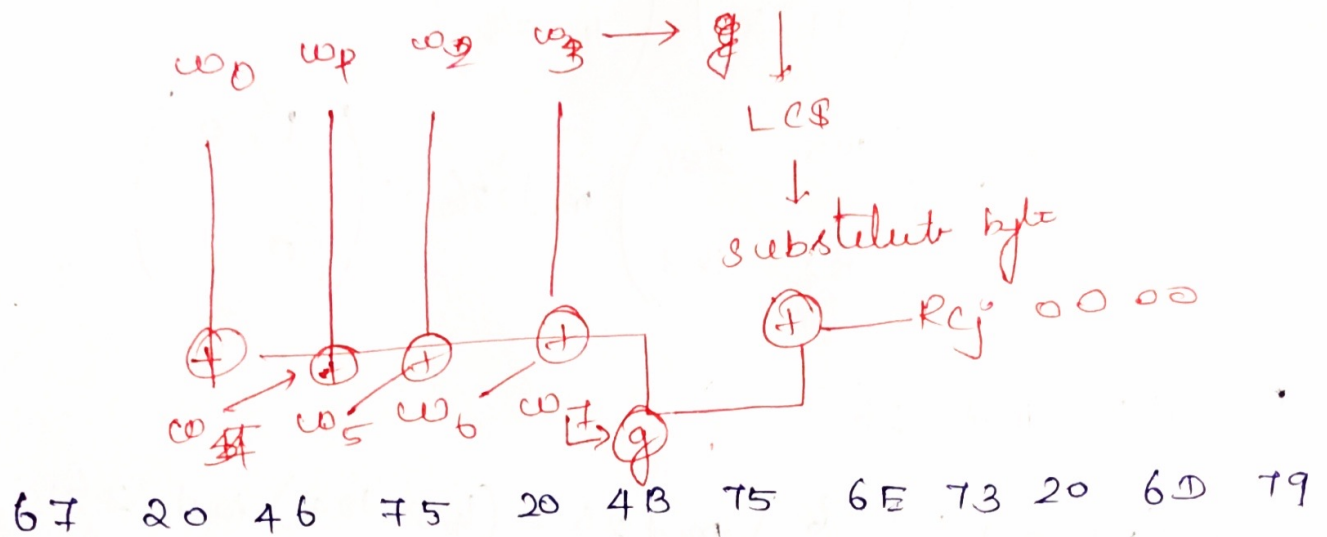 w0 w1 w2 w3 → g
LCS
substelute byte
+ Rcj 00 00
+ + + +
w4 w5 w6 w7 g
67 20 46 75 20 4B 75 6E 73 20 6D 79